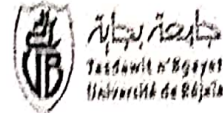 جامعة بجاية
Tasdawit n'Bgayet
Université de Béjaïa